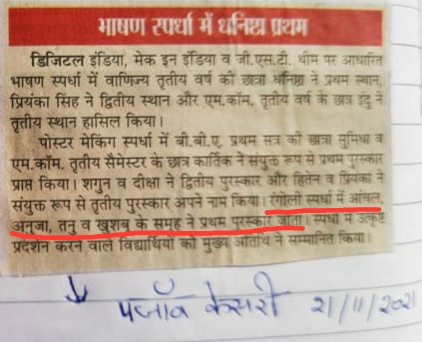 भाषण स्पर्धा में धनिष्ठा प्रथम
डिजिटल इंडिया, मेक इन इंडिया व जी.एस.टी. थीम पर आधारित
भाषण स्पर्धा में वाणिज्य तृतीय वर्ष की छात्रा धनिष्ठा ने प्रथम स्थान,
प्रियंका सिंह ने द्वितीय स्थान और एम.कॉम. तृतीय वर्ष के छात्र इंदु ने
तृतीय स्थान हासिल किया।
पोस्टर मेकिंग स्पर्धा में बी.बी.ए. प्रथम सत्र की छात्रा सुमिधा व
एम.कॉम. तृतीय सैमेस्टर के छात्र कार्तिक ने संयुक्त रूप से प्रथम पुरस्कार
प्राप्त किया। शगुन व दीक्षा ने द्वितीय पुरस्कार और हितेन व प्रियंका ने
संयुक्त रूप से तृतीय पुरस्कार अपने नाम किया। रंगोली स्पर्धा में आंचल,
अनुजा, तनु व खुशबू के समूह ने प्रथम पुरस्कार जीता। स्पर्धा में उत्कृष्ट
प्रदर्शन करने वाले विद्यार्थियों को मुख्य अतिथि ने सम्मानित किया।
पंजाब केसरी 21/11/2021